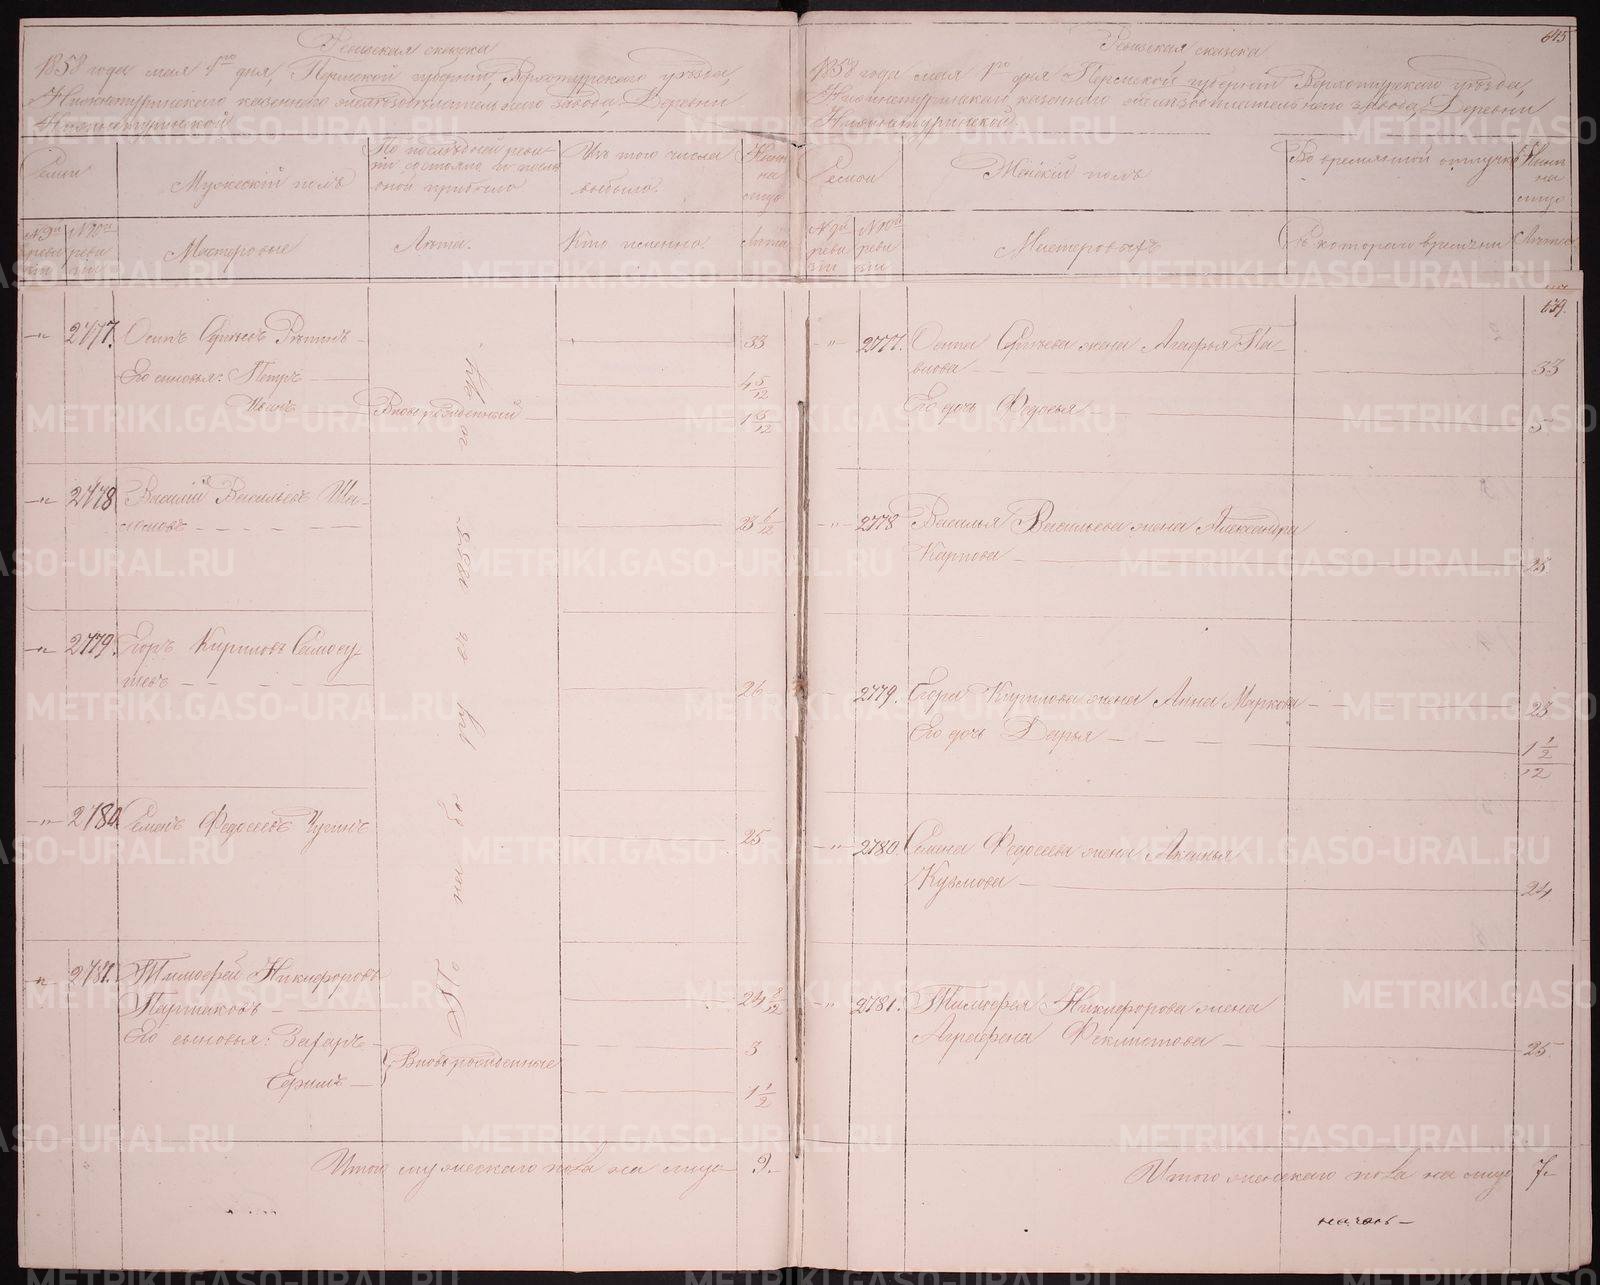 Ревизская сказка
1858 года мая 1го дня, Пермской губернии, Верхотурского уезда,
Нижнетуринского казенного железоделательного завода, Деревни
Нижнетуринской
Семьи
Мужеский полъ
По последней ревизіи состояло и после оной прибыло
Изъ того числа выбыло.
Ныне на лицо
№ 9й ревизіи
№ 10й ревизіи
Мастеровые
Лета.
Кто именно.
Лета
2777.
Осипъ Сергеевъ
33
Его сыновья: Петръ
4 5/12
Иванъ
Вновь рожденный
1 5/12
2778
Василій Васильевъ
23 6/12
2779.
Егоръ Кириловъ
26
2780.
Семенъ Федосеевъ
25
2781.
Тимофей Никифоровъ
24 8/12
Его сыновья: Захаръ
3
Вновь рожденные
1 1/2
Итого мужескаго пола на лицо
9.
645
Ревизская сказка
1858 года мая 1го дня Пермской губерніи Верхотурскаго уезда,
Нижнетуринскаго казеннаго железоделательнаго завода, Деревни
Нижнетуринской
Семьи
Женскій полъ
Во временной отлучке
Ныне на лицо
№ 9й ревизіи
№ 10й ревизіи
Мастеровыхъ
Съ котораго времени
Лета
639.
2777.
Осипа Сергеева жена Агафья Па-
влова
33
Его дочь Федосья
5
2778
Василья Васильева жена Александра
Карпова
25
2779.
Егора Кирилова жена Анна Маркова
23
Его дочь Дарья
1 1/2/12
2780.
Семена Федосеева жена Аксинья
Кузмова
24
2781.
Тимофея Никифорова жена
Аграфена Феклистова
25
Итого женскаго пола на лицо
7.
METRIKI.GASO-URAL.RU